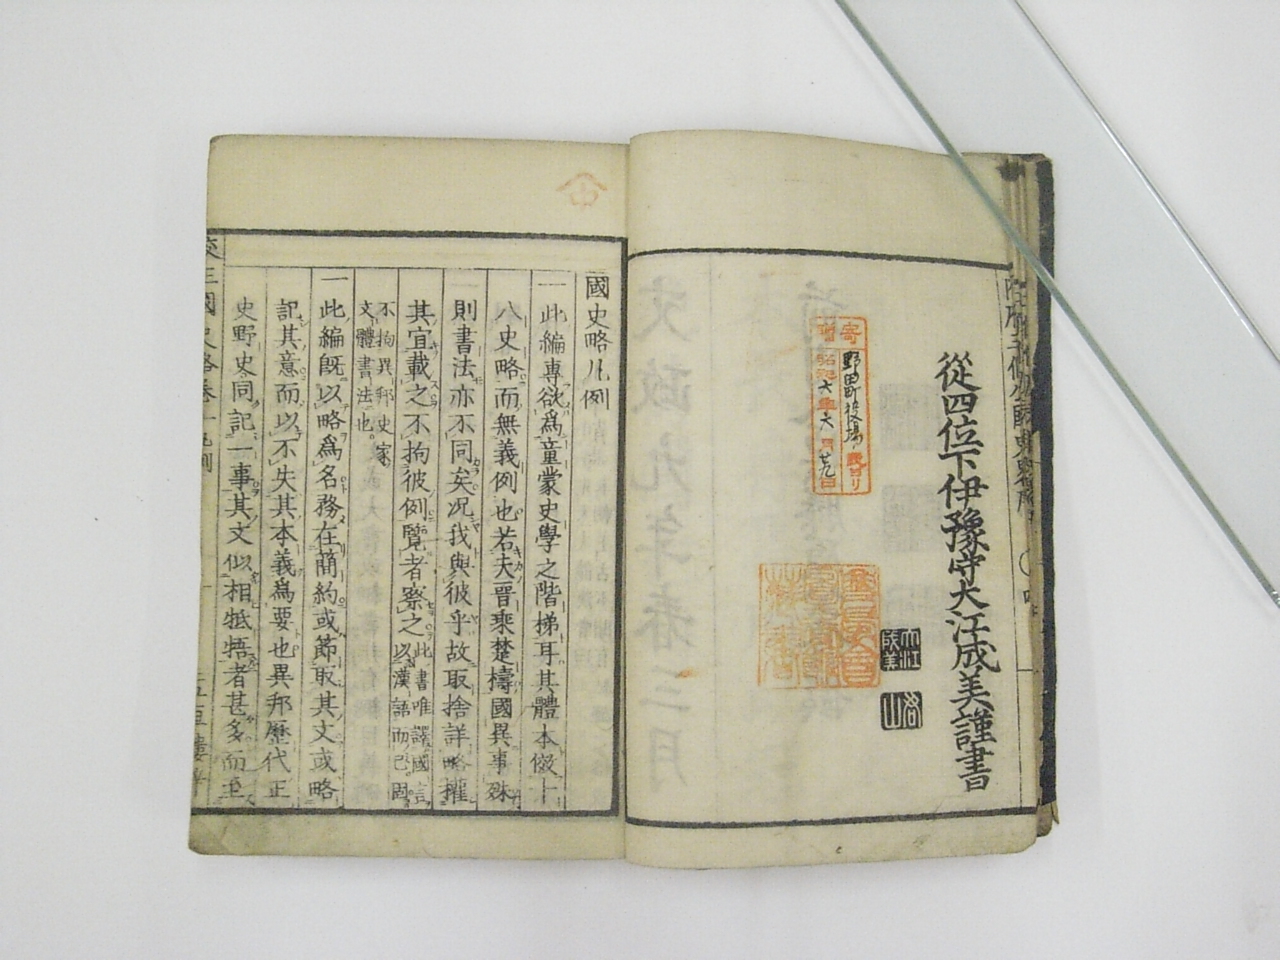 從四位下伊豫守大江成美謹書
大江成美
寄贈
野田町役場ヨリ
昭和六年六月廿九日
國史略凡例
一此編專欲爲童蒙史學之階梯耳其體本倣十
八史略而無義例也若夫晋乘楚檮國異事殊
則書法亦不同矣况我與彼乎故取捨詳略權
其宜載之不拘彼例覽者察之此書唯譯國言
以漢語而已固
不拘異邦史家
文體書法也
一此編既以略爲名務在簡約或節取其文或略
記其意而以不失其本義爲要也異邦歷代正
史野史同記一事其文似相牴牾者甚多而至